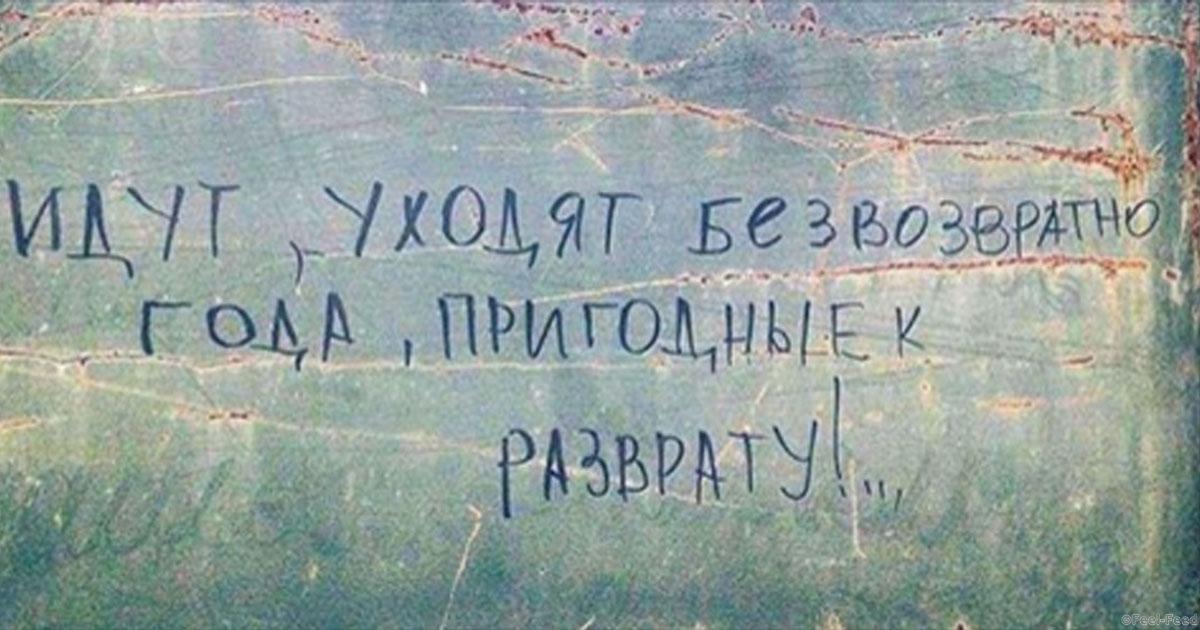 ИДУТ, УХОДЯТ БЕЗВОЗВРАТНО
ГОДА, ПРИГОДНЫЕ К
РАЗВРАТУ!...
©Feel-Feed